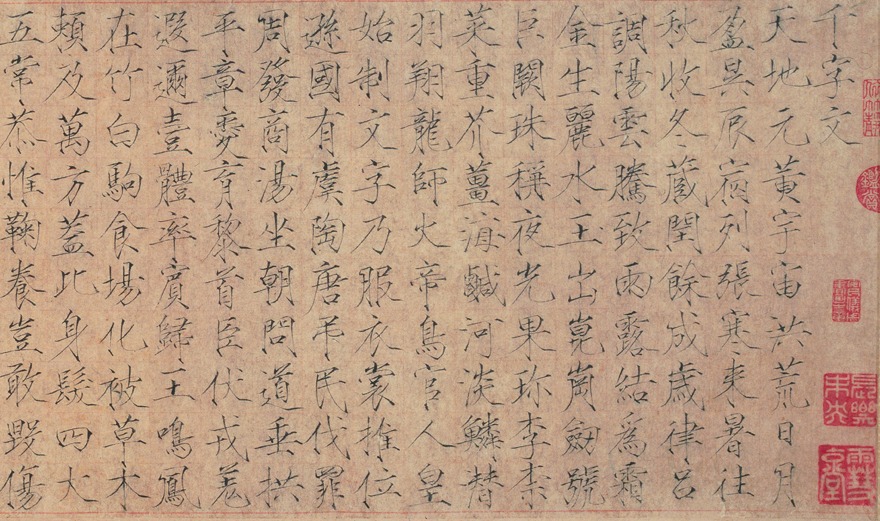 千字文
天地元黃宇宙洪荒日月
盈昃辰宿列張寒来暑往
秋收冬蔵閏餘成歲律呂
調陽雲騰致雨露結爲霜
金生麗水玉出崑崗劒號
巨闕珠稱夜光果珍李柰
菜重芥薑海鹹河淡鱗替
羽翔龍師火帝鳥官人皇
始制文字乃服衣裳推位
遜國有虞陶唐弔民伐罪
周發商湯坐朝問道垂拱
平章愛育黎首臣伏戎羌
遐邇壹體率賓歸王鳴鳳
在竹白駒食場化被草木
頼及萬方蓋此身髮四大
五常恭惟鞠養豈敢毀傷